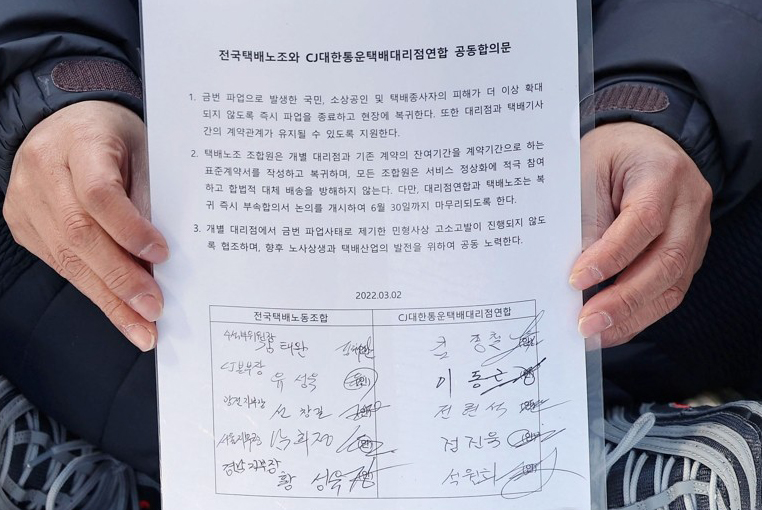 전국택배노조와 CJ대한통운택배대리점연합 공동합의문
1. 금번 파업으로 발생한 국민, 소상공인 및 택배종사자의 피해가 더 이상 확대
되지 않도록 즉시 파업을 종료하고 현장에 복귀한다. 또한 대리점과 택배기사
간의 계약관계가 유지될 수 있도록 지원한다.
2. 택배노조 조합원은 개별 대리점과 기존 계약의 잔여기간을 계약기간으로 하는
표준계약서를 작성하고 복귀하며, 모든 조합원은 서비스 정상화에 적극 참여
하고 합법적 대체 배송을 방해하지 않는다. 다만, 대리점연합과 택배노조는 복
귀 즉시 부속합의서 논의를 개시하여 6월 30일까지 마무리되도록 한다.
3. 개별 대리점에서 금번 파업사태로 제기한 민형사상 고소고발이 진행되지 않도
록 협조하며, 향후 노사상생과 택배산업의 발전을 위하여 공동 노력한다.
2022.03.02
전국택배노동조합 CJ대한통운택배대리점연합
김태완 김종철
CJ본부장
유성욱 이동근
전련석
김진욱
경남지부장
황성욱 석원희